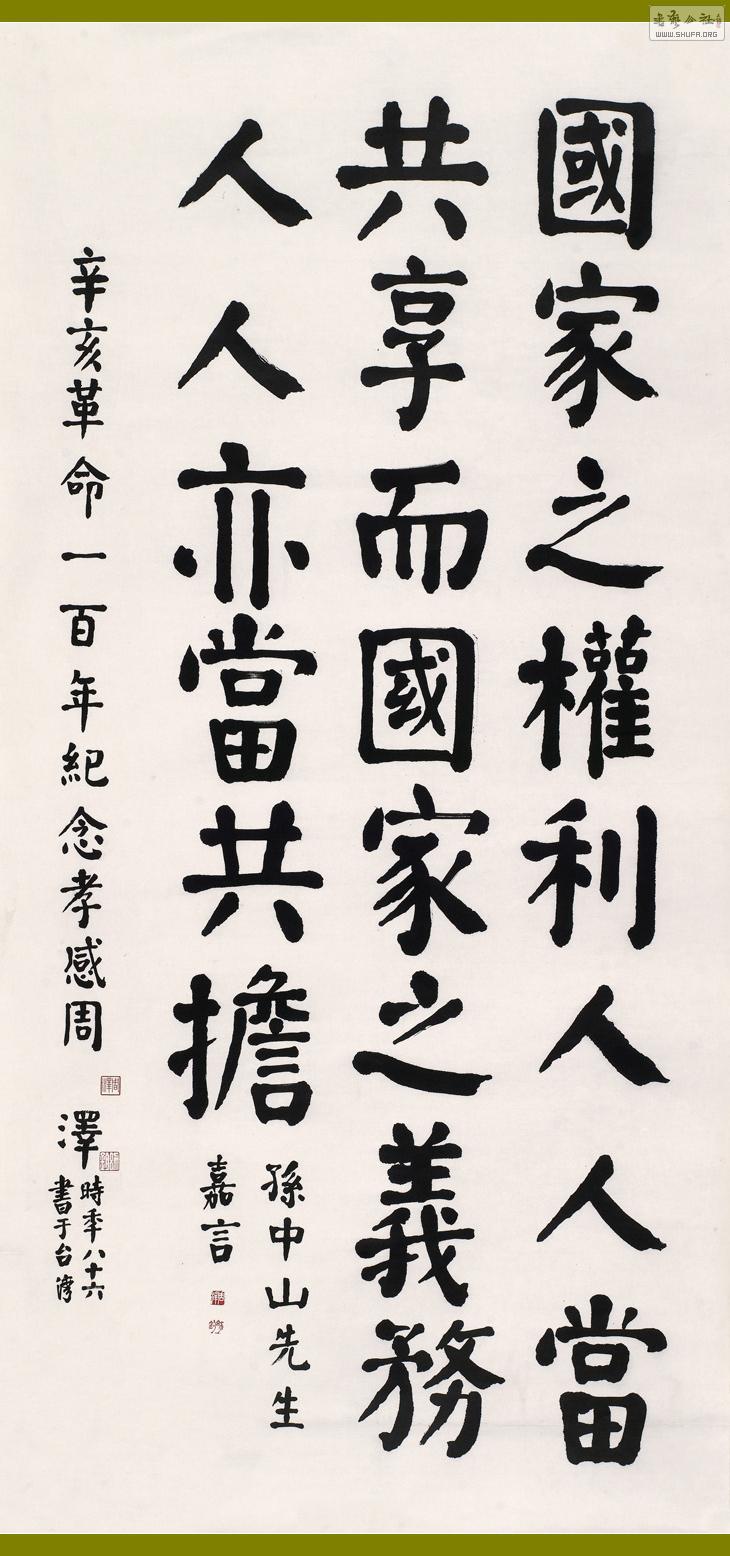 國家之權利人人當
共享而國家之義務
人人亦當共擔
孫中山先生
嘉言
辛亥革命一百年紀念孝感周
澤
時年八十六
書于台灣
WWW.SHUFA.ORG